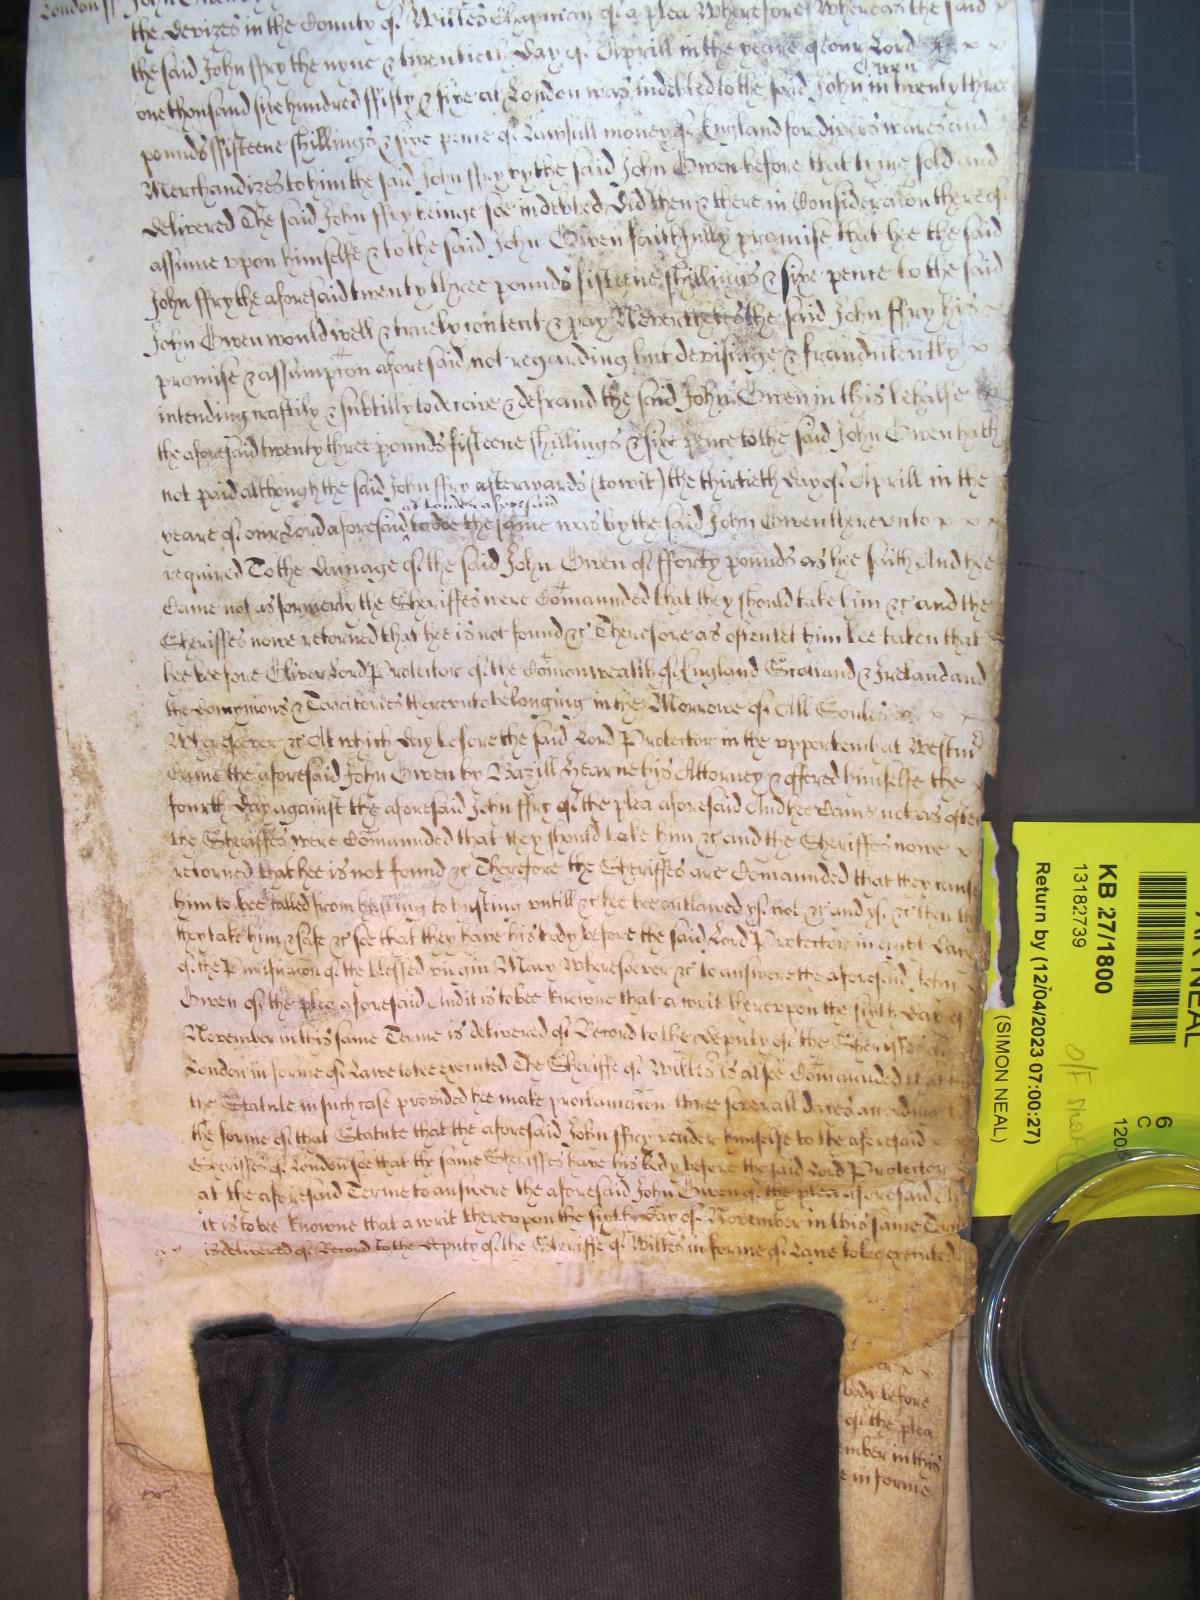 London ss John Owen
the Devizes in the County of Wiltes Chapman of a plea Wherefore Whereas the said
the said John ffry the nyne & twentieth day of Aprill in the yeare of our Lord x x x
one thousand sixe hundred ffifty & five at London was indebted to the said John Owen in twenty three
pounds ffifteene shillings & sixe pence of Lawfull money of England for divers wares and
Merchandizes to him the said John ffry by the said John Owen before that tyme sold and
delivered The said John ffry beinge soe indebted Did then & there in Consideracon thereof
assume vpon himselfe & to the said John Owen faithfully promise that hee the said
John ffry the aforesaid twenty three pounds fifteene shillings & sixe pence to the said
John Owen would well & truely content & pay Neverthelesse the said John ffry his x
promise & assumption aforesaid not regarding but devisinge & fraudulently x
intending craftily & subtilly to deceive & defraud the said John Owen in this behalfe
the aforesaid twenty three pounds fifteene shillings & sixe pence to the said John Owen hath
not paid although the said John ffry afterwards (to wit) the thirtieth day of Aprill in the
yeare of our Lord aforesaid at London aforesaid to doe the same was by the said John Owen therevnto x x x
required To the damage of the said John Owen of fforty pounds as hee saith And hee
Came not as formerly the Sheriffes were Comaunded that they should take him &c and the
Sheriffes nowe retorned that hee is not found &c Therefore as often let him bee taken that
hee bee before Oliver Lord Protector of the Comonwealth of England Scotland & Ireland and
the Dominions & Territories therevnto belonging in the Morrowe of All Soules x x x
Wheresoever &c At which day before the said Lord Protector in the vpper bench at Westm
Came the aforesaid John Owen by Bazill Hearne his Attorney & offered himselfe the
fourth day against the aforesaid John ffry of the plea aforesaid And hee Came not as often
the Sheriffes were Comaunded that they should take him &c and the Sheriffes nowe x
retorned that hee is not found &c Therefore the Sheriffes are Comaunded that they cause
him to bee called from husting to husting vntill &c hee bee outlawed yf not &c and yf &c then th
they take him & safe &c soe that they have his body before the said Lord Protector in
of the Purificacon of the blessed virgin Mary Wheresoever &c to answere the aforesaid John
Owen of the plea aforesaid And it is to bee knowne that a writ therevpon the sixth day of
November in this same Terme is delivered of Record to the deputy of the Sheriffes of
London in forme of Lawe to bee executed The Sheriffe of Wiltes is alsoe Comaunded that
the Statute in such case provided hee make proclamacon three severall dayes according
the forme of that Statute that the aforesaid John ffry render himselfe to the aforesaid x
Sheriffes of London soe that the same Sheriffes have his body before the said Lord Protector
at the aforesaid Terme to answere the aforesaid John Owen of the plea aforesaid And
it is to bee knowne that a writ therevpon the sixth day of November in this same Terme
is delivered of Record to the deputy of the Sheriffe of Wiltes in forme of Lawe to bee executed
body before
of the plea
ember in this
e in forme
KB 27/1800
13182739
Return by (12/04/2023 07:00:27)
(SIMON NEAL)
6
C